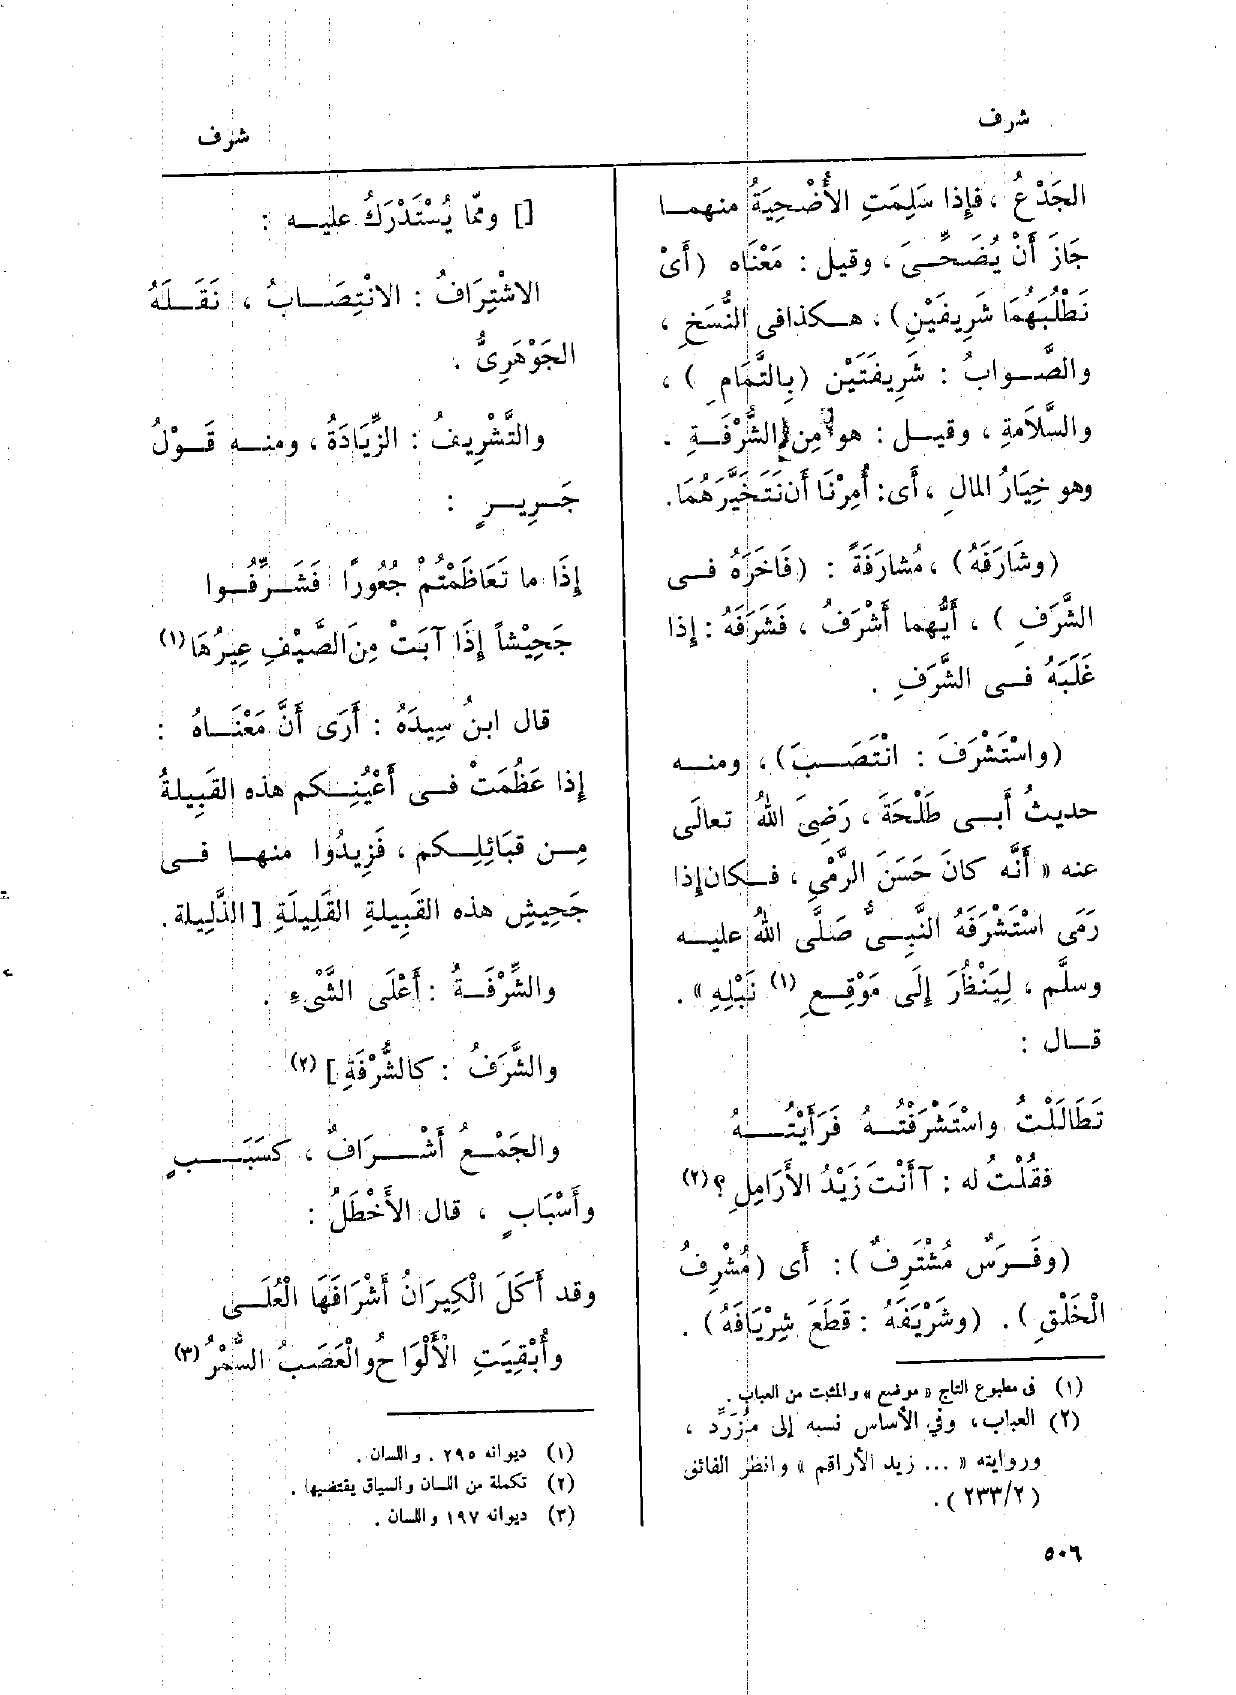 شرف
شرف
الجَذَعُ ، فإذا سَلِمَتِ الأُضْحِيَةُ منهما
جَازَ أَنْ يُضَحَّىَ ، وقيل : مَعْنَاه (أَىْ
نَطْلُبَهُمَا شَرِيفَيْنِ) ، هكذا فى النُّسَخِ ،
والصَّوابُ : شَرِيفَتَيْن (بِالتَّمَامِ) ،
والسَّلاَمةِ ، وقيل : هو مِن الشُّرْفَةِ ،
وهو خِيَارُ المالِ ، أى : أُمِرْنَا أن نَتَخَيَّرَهُمَا.
(وشَارَفَهُ) ، مُشارَفَةً : (فَاخَرَهُ فى
الشَّرَفِ) ، أَيُّهما أَشْرَفُ ، فَشَرَفَهُ : إذا
غَلَبَهُ فى الشَّرَفِ .
(واسْتَشْرَفَ : انْتَصَبَ) ، ومنه
حديثُ أبى طَلْحَةَ ، رَضِىَ اللهُ تعالَى
عنه « أَنَّه كانَ حَسَنَ الرَّمْىِ ، فكان إذا
رَمَى اسْتَشْرَفَهُ النَّبِىُّ صَلَّى اللهُ عليه
وسلَّم ، لِيَنْظُرَ إلَى مَوْقِعِ (١) نَبْلِهِ » .
قال :
تَطَالَلْتُ واسْتَشْرَفْتُهُ فَرَأَيْتُهُ
فقُلْتُ له : آأنْتَ زَيْدُ الأَرَامِلِ ؟ (٢)
(وفَرَسٌ مُشْتَرِفٌ) : أَى (مُشْرِفُ
الْخَلْقِ) . (وشَرْيَفَهُ : قَطَعَ شِرْيَافَهُ) .
(١) فى مطبوع التاج « موضع » والمثبت من العباب .
(٢) العباب ، وفي الأساس نسبه إلى مُزَرِّد ،
وروايته « ... زيد الأراقم » وانظر الفائق
(٢٣٣/٢) .
٥٠٦
[] وممّا يُسْتَدْرَكُ عليه :
الاشْتِرَافُ : الانْتِصَابُ ، نَقَلَهُ
الجَوْهَرِىُّ .
والتَّشْرِيفُ : الزِّيَادَةُ ، ومنه قَوْلُ
جَرِيرٍ :
إذَا ما تَعَاظَمْتُمْ جُعُورًا فَشَرِّفُوا
جَحِيْشاً إذَا آبَتْ مِنَ الصَّيْفِ عِيرُهَا (١)
قال ابنُ سِيدَهُ : أَرَى أَنَّ مَعْنَاهُ :
إذا عَظُمَتْ فى أَعْيُنِكم هذه القَبِيلةُ
مِن قبَائِلِكم ، فَزِيدُوا منها فى
جَحِيشِ هذه القَبِيلةِ القَلِيلَةِ [ الذَّلِيلة .
والشُّرْفَةُ : أَعْلَى الشَّىْءِ .
والشَّرَفُ : كالشُّرْفَةِ ] (٢)
والجَمْعُ أَشْرَافٌ ، كسَبَبٍ
وأَسْبَابٍ ، قال الأَخْطَلُ :
وقد أَكَلَ الْكِيرَانُ أَشْرَافَهَا الْعُلَى
وأُبْقِيَتِ الْأَلْوَاحُ والْعَصَبُ السُّمْرُ (٣)
(١) ديوانه ٢٩٥ . واللسان .
(٢) تكملة من اللسان والسياق يقتضيها .
(٣) ديوانه ١٩٧ واللسان .